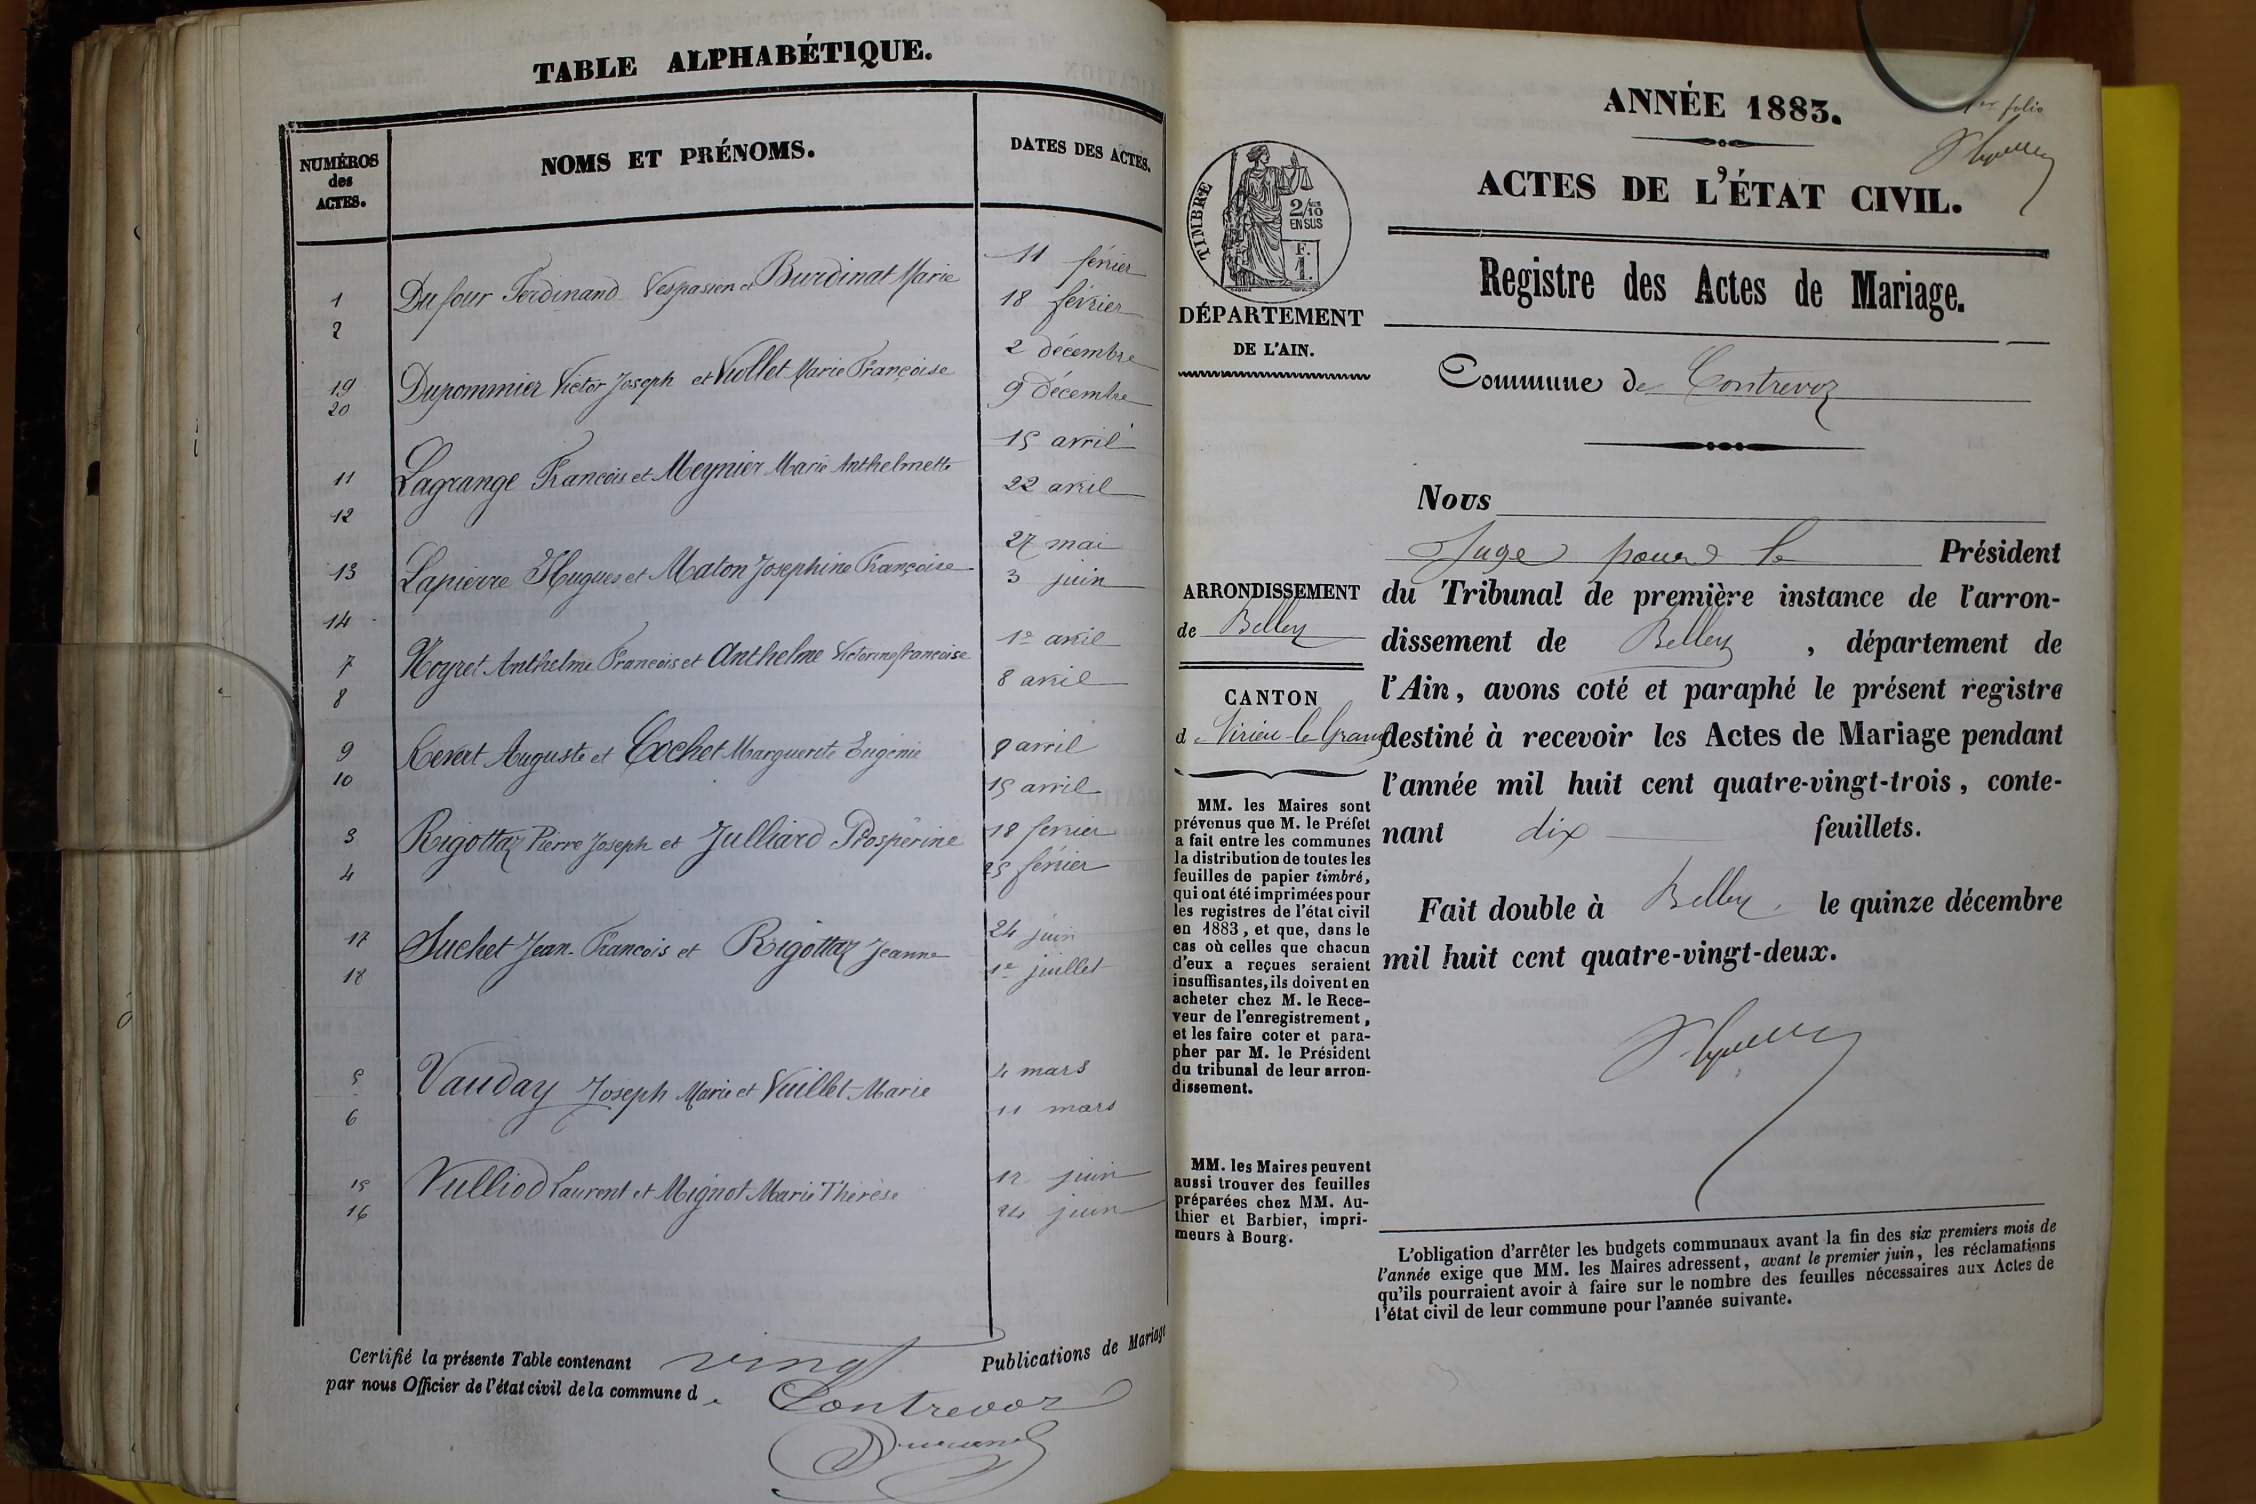 TABLE ALPHABÉTIQUE.
NUMÉROS
des
ACTES.
NOMS ET PRÉNOMS.
DATES DES ACTES.
11 février
1 Dufour Ferdinand Vespasien et Burdinat Marie
18 février
2
2 décembre
19 Dupommier Victor Joseph et Viollet Marie Françoise
9 décembre
20
15 avril
11 Lagrange François et Meynier Marie Anthelmette
22 avril
12
27 mai
13 Lapierre Hugues et Maton Josephine Françoise
3 juin
14
1er avril
7 Noyret Anthelme François et Anthelme Victorine françoise
8 avril
8
9 Revert Auguste et Cochet Marguerite Eugénie 8 avril
10 15 avril
3 Rigottaz Pierre Joseph et Julliard Prospérine 18 fevrier
4 25 février
17 Suchet Jean-François et Rigottaz Jeanne 24 juin
18 1er juillet
5 Vauday Joseph Marie et Vuillet Marie 4 mars
6 11 mars
15 Vulliod Laurent et Mignot Marie Thérèse 17 juin
16 24 juin
Certifié la présente Table contenant vingt Publications de Mariage
par nous Officier de l'état civil de la commune de Contrevoz
1er folio
ANNÉE 1883.
ACTES DE L'ÉTAT CIVIL.
TIMBRE
2/10
EN SUS
F.
1.
Registre des Actes de Mariage.
DÉPARTEMENT
DE L'AIN.
Commune de Contrevoz
ARRONDISSEMENT
de Belley
CANTON
de Virieu-le-Grand
MM. les Maires sont
prévenus que M. le Préfet
a fait entre les communes
la distribution de toutes les
feuilles de papier timbré,
qui ont été imprimées pour
les registres de l'état civil
en 1883, et que, dans le
cas où celles que chacun
d'eux a reçues seraient
insuffisantes, ils doivent en
acheter chez M. le Rece-
veur de l'enregistrement,
et les faire coter et para-
pher par M. le Président
du tribunal de leur arron-
dissement.
MM. les Maires peuvent
aussi trouver des feuilles
préparées chez MM. Au-
thier et Barbier, impri-
meurs à Bourg.
Nous
Juge pour le Président
du Tribunal de première instance de l'arron-
dissement de Belley, département de
l'Ain, avons coté et paraphé le présent registre
destiné à recevoir les Actes de Mariage pendant
l'année mil huit cent quatre-vingt-trois, conte-
nant dix feuillets.
Fait double à Belley, le quinze décembre
mil huit cent quatre-vingt-deux.
L'obligation d'arrêter les budgets communaux avant la fin des six premiers mois de
l'année exige que MM. les Maires adressent, avant le premier juin, les réclamations
qu'ils pourraient avoir à faire sur le nombre des feuilles nécessaires aux Actes de
l'état civil de leur commune pour l'année suivante.